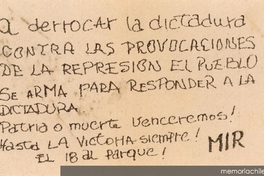 a derrocar la dictadura
CONTRA LAS PROVOCACIONES
DE LA REPRESION EL PUEBLO
SE ARMA PARA RESPONDER A LA
DICTADURA
Patria o muerte venceremos!
Hasta LA VICTORIA siempre! MIR
EL 18 al Parque!
memoriachile